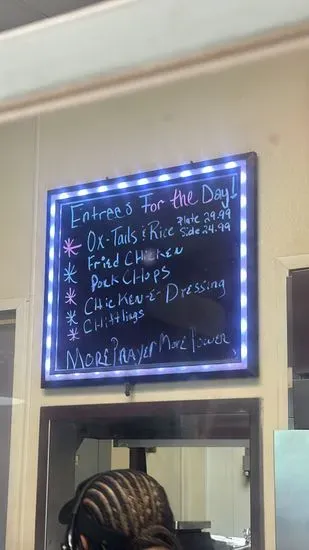 Entrees For the Day!
* Ox-Tails & Rice Plate 29.99 Side 24.99
* Fried Chicken
* Pork Chops
* Chicken-&-Dressing
* Chittlings
More Prayer More Power